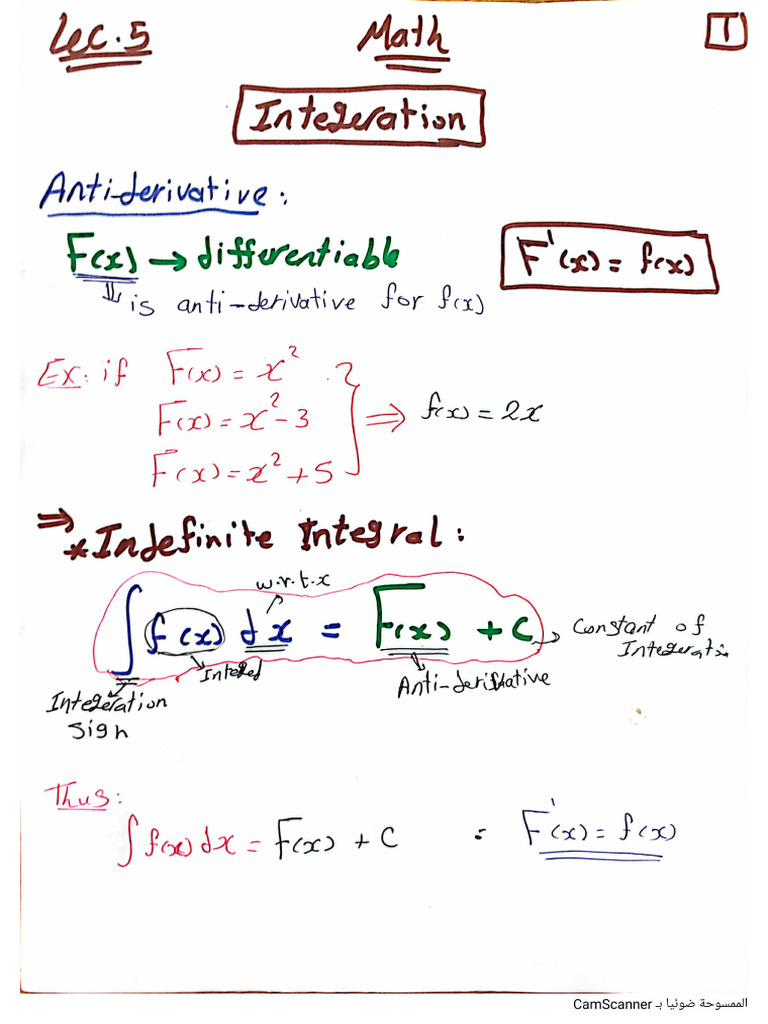 Lec.5 Math 1
Integeration
Anti-derivative:
F(x) → differentiable
F'(x) = f(x)
is anti-derivative for f(x)
Ex: if F(x) = x²
F(x) = x² - 3 ⇒ f(x) = 2x
F(x) = x² + 5
⇒ * Indefinite Integral:
w.r.t.x
∫ f(x) dx = F(x) + C
Constant of
Integeration
Anti-derivative
Integeration
Sign
Thus:
∫ f(x) dx = F(x) + C = F'(x) = f(x)
الممسوحة ضوئيا بـ CamScanner